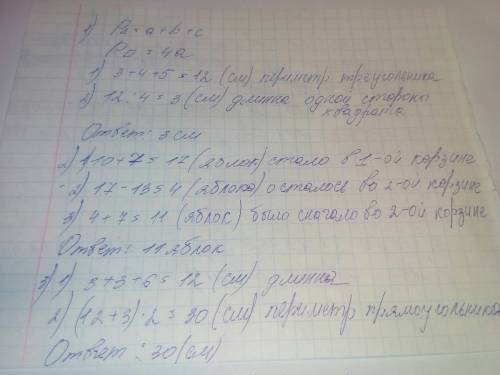 1) P△ = a + b + c
P□ = 4a
1) 3+4+5 = 12 (см) периметр треугольника
2) 12 : 4 = 3 (см) длинна одной стороны
квадрата
Ответ: 3 см
2) 1) 10+7 = 17 (яблок) стало в 1-ой корзине
2) 17-13 = 4 (яблока) осталось во 2-ой корзине
3) 4+7 = 11 (яблок) было сначало во 2-ой корзине
Ответ: 11 яблок
3) 1) 3+3+6 = 12 (см) длинна
2) (12+3)·2 = 30 (см) периметр прямоугольника
Ответ: 30 (см)